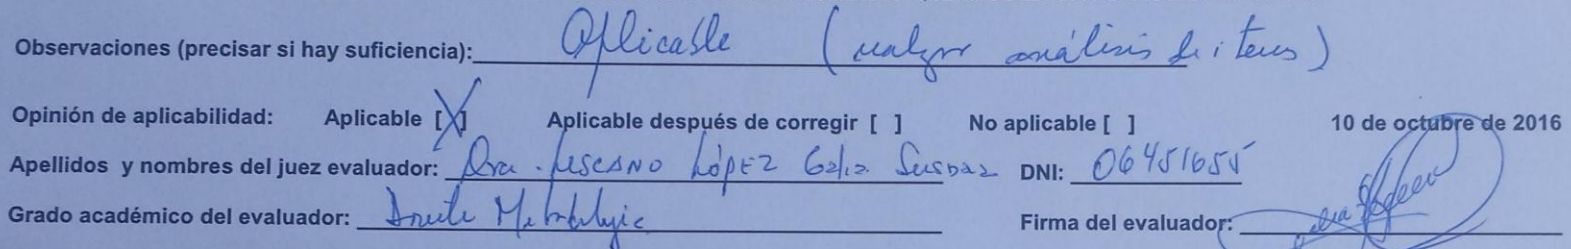 Observaciones (precisar si hay suficiencia): Aplicable (realizar análisis de ítems)
Opinión de aplicabilidad: Aplicable [X] Aplicable después de corregir [ ] No aplicable [ ] 10 de octubre de 2016
Apellidos y nombres del juez evaluador: Dra. Lescano López Galia Susana DNI: 06451655
Grado académico del evaluador: Firma del evaluador: